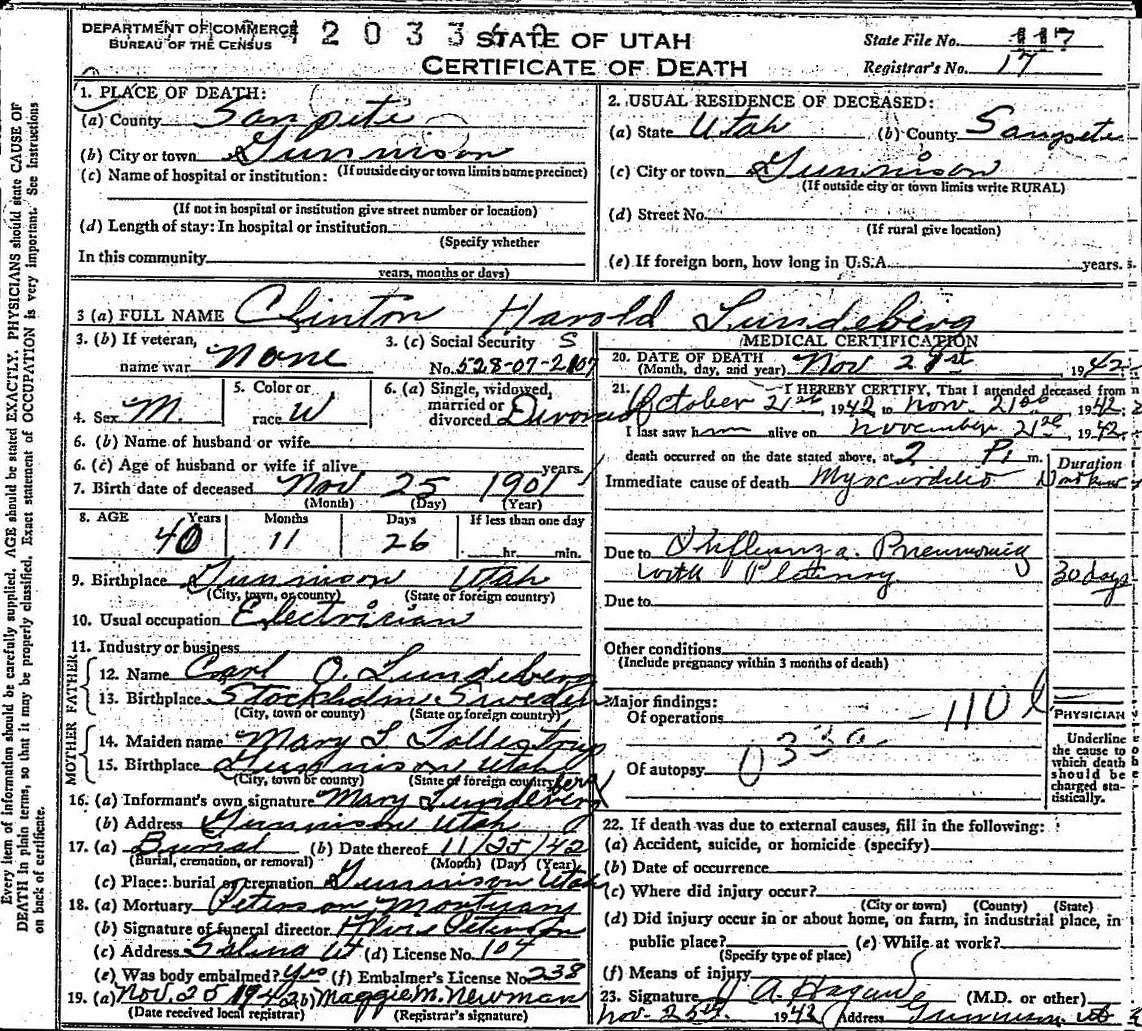 DEPARTMENT OF COMMERCE
BUREAU OF THE CENSUS
STATE OF UTAH
CERTIFICATE OF DEATH
State File No. 117
Registrar's No. 17
1. PLACE OF DEATH:
(a) County Sanpete
(b) City or town Gunnison
(If outside city or town limits name precinct)
(c) Name of hospital or institution:
(If not in hospital or institution give street number or location)
(d) Length of stay: In hospital or institution
(Specify whether
In this community
years, months or days)
2. USUAL RESIDENCE OF DECEASED:
(a) State Utah (b) County Sanpete
(c) City or town Gunnison
(If outside city or town limits write RURAL)
(d) Street No.
(If rural give location)
(e) If foreign born, how long in U.S.A. years.
3 (a) FULL NAME Clinton Harold Lundeberg
3. (b) If veteran, name war None
3. (c) Social Security No. 528-07-2107
4. Sex M
5. Color or race W
6. (a) Single, widowed, married or divorced Divorced
6. (b) Name of husband or wife
6. (c) Age of husband or wife if alive years.
7. Birth date of deceased Nov 25 1901
(Month) (Day) (Year)
8. AGE Years Months Days If less than one day
40 11 26 hr. min.
9. Birthplace Gunnison Utah
(City, town, or county) (State or foreign country)
10. Usual occupation Electrician
11. Industry or business
FATHER
12. Name Carl O. Lundeberg
13. Birthplace Stockholm Sweden
(City, town or county) (State or foreign country)
MOTHER
14. Maiden name Mary L Tollestrup
15. Birthplace Gunnison Utah
(City, town or county) (State of foreign country)
16. (a) Informant's own signature Mary Lundeberg
(b) Address Gunnison Utah
17. (a) Burial (b) Date thereof 11/25/42
(Burial, cremation, or removal) (Month) (Day) (Year)
(c) Place: burial or cremation Gunnison Utah
18. (a) Mortuary Peterson Mortuary
(b) Signature of funeral director Peterson
(c) Address Salina Ut (d) License No. 104
(e) Was body embalmed? Yes (f) Embalmer's License No. 238
19. (a) Nov. 25 1942 (b) Maggie M. Newman
(Date received local registrar) (Registrar's signature)
MEDICAL CERTIFICATION
20. DATE OF DEATH Nov 21st 1942
(Month, day, and year)
21. I HEREBY CERTIFY, That I attended deceased from
October 21st, 1942 to Nov. 21st 1942
I last saw him alive on November 21st, 1942
death occurred on the date stated above, at 2 P. m.
Duration
Immediate cause of death Myocarditis
Due to Influenza Pneumonia
with Pleurisy 30 days
Due to
Other conditions
(Include pregnancy within 3 months of death)
Major findings:
Of operations
110
033a
Of autopsy
PHYSICIAN
Underline the cause to which death should be charged statistically.
22. If death was due to external causes, fill in the following:
(a) Accident, suicide, or homicide (specify)
(b) Date of occurrence
(c) Where did injury occur?
(City or town) (County) (State)
(d) Did injury occur in or about home, on farm, in industrial place, in
public place? (e) While at work?
(Specify type of place)
(f) Means of injury
23. Signature J A. Hagan (M.D. or other)
Nov. 25th. 1942 Address Gunnison Ut
Every item of information should be carefully supplied. AGE should be stated EXACTLY. PHYSICIANS should state CAUSE OF
DEATH in plain terms, so that it may be properly classified. Exact statement of OCCUPATION is very important. See Instructions
on back of certificate.